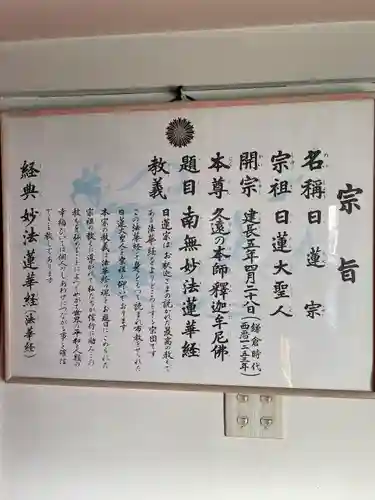 宗旨
名称 日蓮宗
宗祖 日蓮大聖人
開宗 建長五年四月二十八日(鎌倉時代 西暦一二五三年)
本尊 久遠の本師釋迦牟尼佛
題目 南無妙法蓮華経
教義
日蓮宗は、お釈迦さまの説かれた最高の教えで
ある法華経をよりどころとする宗団です
この法華経を身をもって読まれ布教せられた
日蓮大聖人を宗祖と仰いでおります
本宗の教義は法華経の現とお題目にこめられた
宗祖の教えに導かれ、私たちが信行に励みこの
教えを弘めることによってやがて世界の平和と人類の
幸福ひいては個人のしあわせにつながる事を確信
経典 妙法蓮華経(法華経)